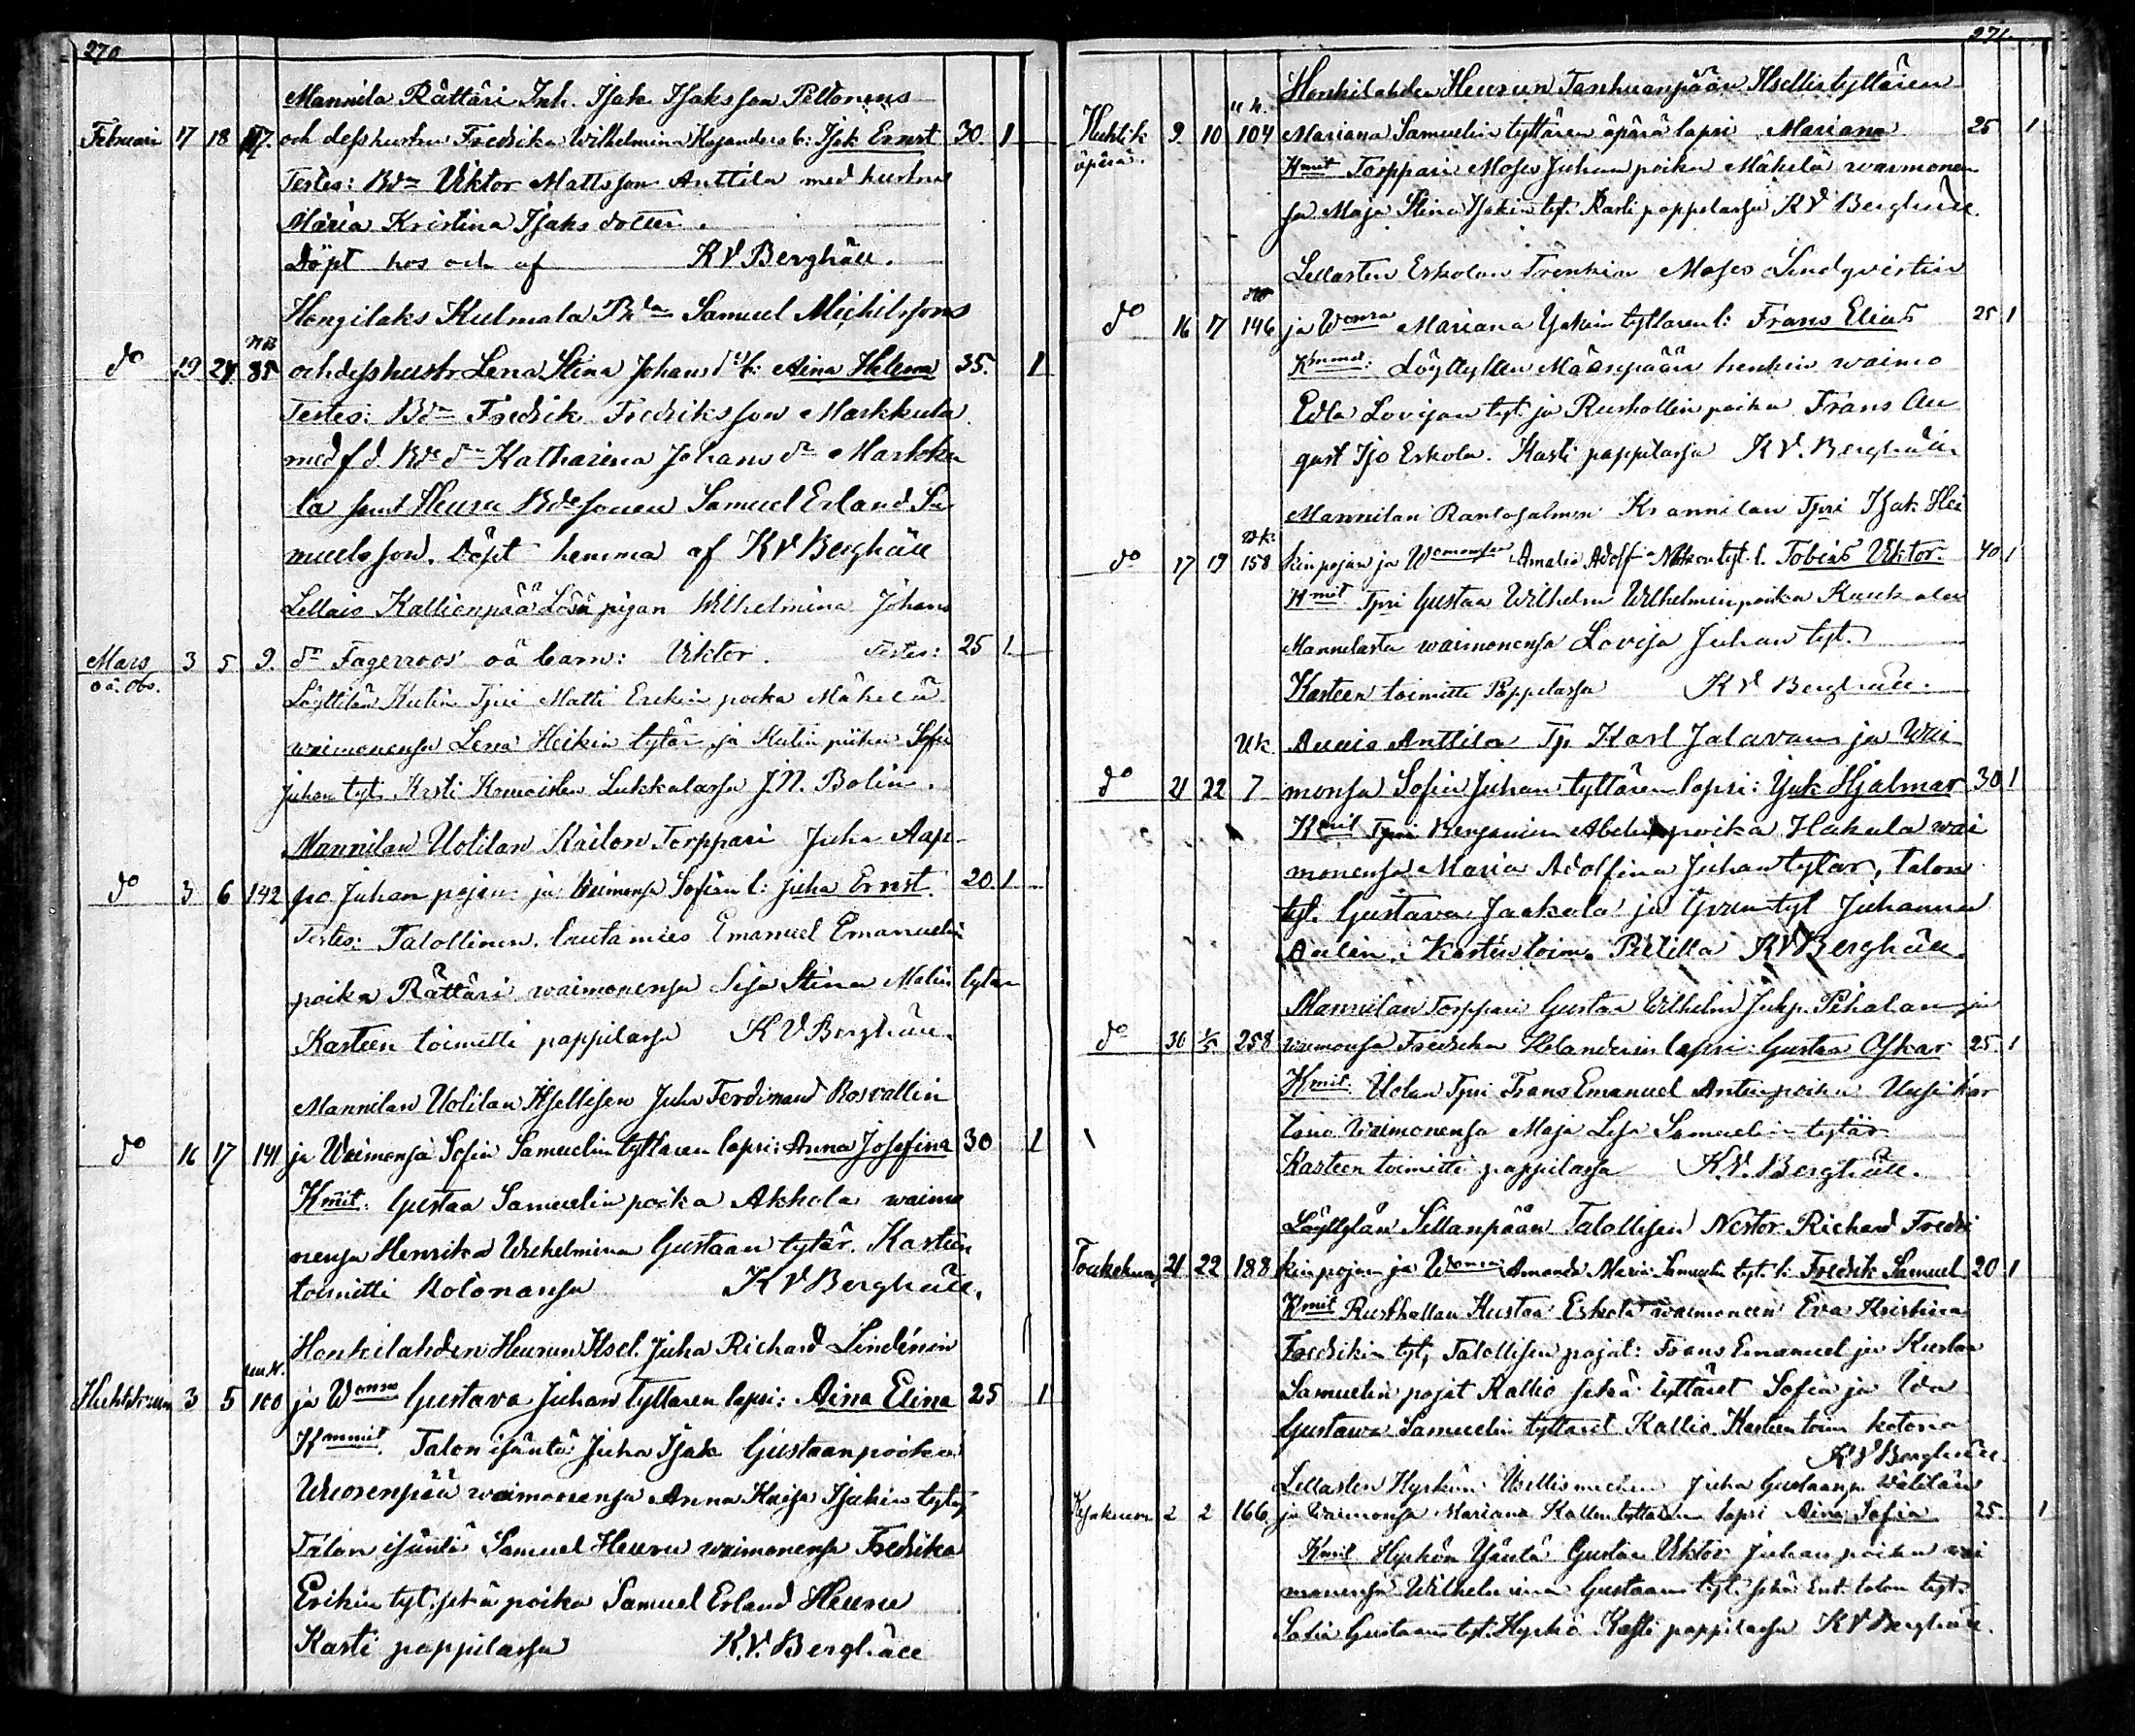 270
Mannila Rättäri Inh. Isak Isaksson Peltonens
Februari 17 18 117. och desshustru Fredrika Wilhelmina Kajanders b: Isak Ernst 30. 1
Testes: Bdn Viktor Mattsson Anttila med hustru
Maria Kristina Isaks dotter.
Döpt hos och af K V Berghäll.
Hongilaks Kulmala Bdn Samuel Michelssons
do 19 24 85 och desshustr Lena Stina Johans dr b: Aina Helena 35. 1
Testes: Bdn Fredrik Fredriksson Markkula
med f d. Bde dn Katharina Johans dr Markku
la samt Heura Bdesonen Samuel Erland Sa
muelsson. Döpt hemma af K V Berghäll
Lellais Kallionpää Lösa pigan Wilhelmina Johans
Mars 3 5 9. dr Fagerroos oä barn: Viktor. Testes: 25 1
oä. Obs.
Löyttilän Kutin Tpri Matti Erikin poika Mäkelä
waimonensa Lena Heikin tytär ja Kutin piika Sofia
Juhan tyt. Kasti Lukkalassa J.N. Bolin.
Mannilan Uolilan Railon Torppari Juha Aap-
do 3 6 142 po Juhan pojan ja Waimonsa Sofian l: Juha Ernst 20. 1
Testes: Talollinen, lautamies Emanuel Emanuelin
poika Rättäri waimonensa Lisa Stina Matin tytär
Kasteen toimitti pappilassa K V Berghäll.
Mannilan Uolilan Itsellisen Juha Ferdinand Rosvallin
do 16 17 141 ja Waimonsa Sofia Samuelin tyttären lapsi: Anna Josefina 30 1
Kmit: Gustaa Samuelin poika Akkola waimo
nensa Henrika Wilhelmina Gustaan tytär. Kasteen
toimitti kotonansa K V Berghäll.
Honkilahden Heurun Itsel. Juha Richard Lindénin
Huhtikuu 3 5 100 ja Wonsa Gustava Juhan tyttären lapsi: Aina Elina 25 1
Kmmit. Talon isäntä Juha Isak Gustaanpoika
Wuorenpää waimonensa Anna Kaisa Isakin tytär
Talon isäntä Samuel Heuru waimonensa Fredrika
Erikin tyt. sekä poika Samuel Erland Heuru
Kasti pappilassa K.V. Berghäll
271.
Honkilahden Heurun Tanhuanpään Itsellistyttären
Huhtik 9. 10 104 Mariana Samuelin tyttären äpärä lapsi Mariana 25 1
äpärä.
Kmit Torppari Moses Juhan poika Mäkelä waimonen
sa Maja Stina Isakin tyt. Kasti pappilassa K V Berghäll.
Lellaisten Eskolan Trenkin Moses Lindqvistin
do 16 17 146 ja Wonsa Mariana Isakin tyttären l: Frans Elias 25 1
Kmmit: Löyttylän Mäenpään henkin waimo
Edla Lovisan tyt. ja Rushollin poika Frans Au
gust Iso Eskola. Kasti pappilassa K V. Berghäll
Mannilan Rantasalmen Krannilan Tpri Isak Hei
do 17 19 158 kinpojan ja Wamonsa Amalia Adolf l. Tobias Viktor. 40 1
Kmit Tpri Gustaa Wilhelm Wilhelminpoika
Mannilasta waimonensa Lovisa Juhan tyt.
Kasteen toimitti Pappilassa K V Berghäll.
Auvais Anttilan Tp Karl Jalavan ja Wai
do 21 22 7 monsa Sofia Juhan tyttären lapsi: Isak Hjalmar 30 1
Kmit Tpri Benjamin Abelin poika Hakala wai
monensa Maria Adolfina Juhan tytar, Talon
tyt. Gustava Jaakola ja tyt Juhanna
Kasteen toim. K V Berghäll.
Mannilan Torppari Gustaa Wilhelm Juhp. Pihalan ja
do 30 1/5 258 waimonsa Fredrika Helanderin lapsi: Gustaa Oskar 25. 1
Kmit: Uolan Tpri Frans Emanuel Antinpoika Uusikar
tano Waimonensa Maja Lisa Samuelin tytär.
Kasteen toimitti pappilassa K.V. Berghäll.
Löyttylän Sillanpään Talollisen Nestor Richard Fredri
Toukokuu 21 22 188 kin pojan ja Wonsa Amanda Maria Samuelin tyt. l: Fredrik Samuel 20 1
Kmit Rusthollari Kustaa Eskola waimoneen Eva Kristina
Fredrikin tyt, Talollisen pojat: Frans Emanuel ja Kustaa
Samuelin pojat Kallio sekä tyttäret Sofia ja Ida
Gustawa Samuelin tyttäret Kallio. Kasteen toim kotona
K V Berghäll.
Lellaisten Hyrkön Itsellismiehen Juha Gustaanp. Wälilän
Kesäkuu 2 2 166. ja Waimonsa Mariana Kallentyttären lapsi Aina Sofia 25. 1
Kmit Hyrkön Isäntä Gustaa Viktor Juhan poika wai
monensa Wilhelmina Gustaan tyt. sekä Ent. talon tyt.
Sofia Gustaan tyt. Hyrkö Kasti pappilassa K V Berghäll.